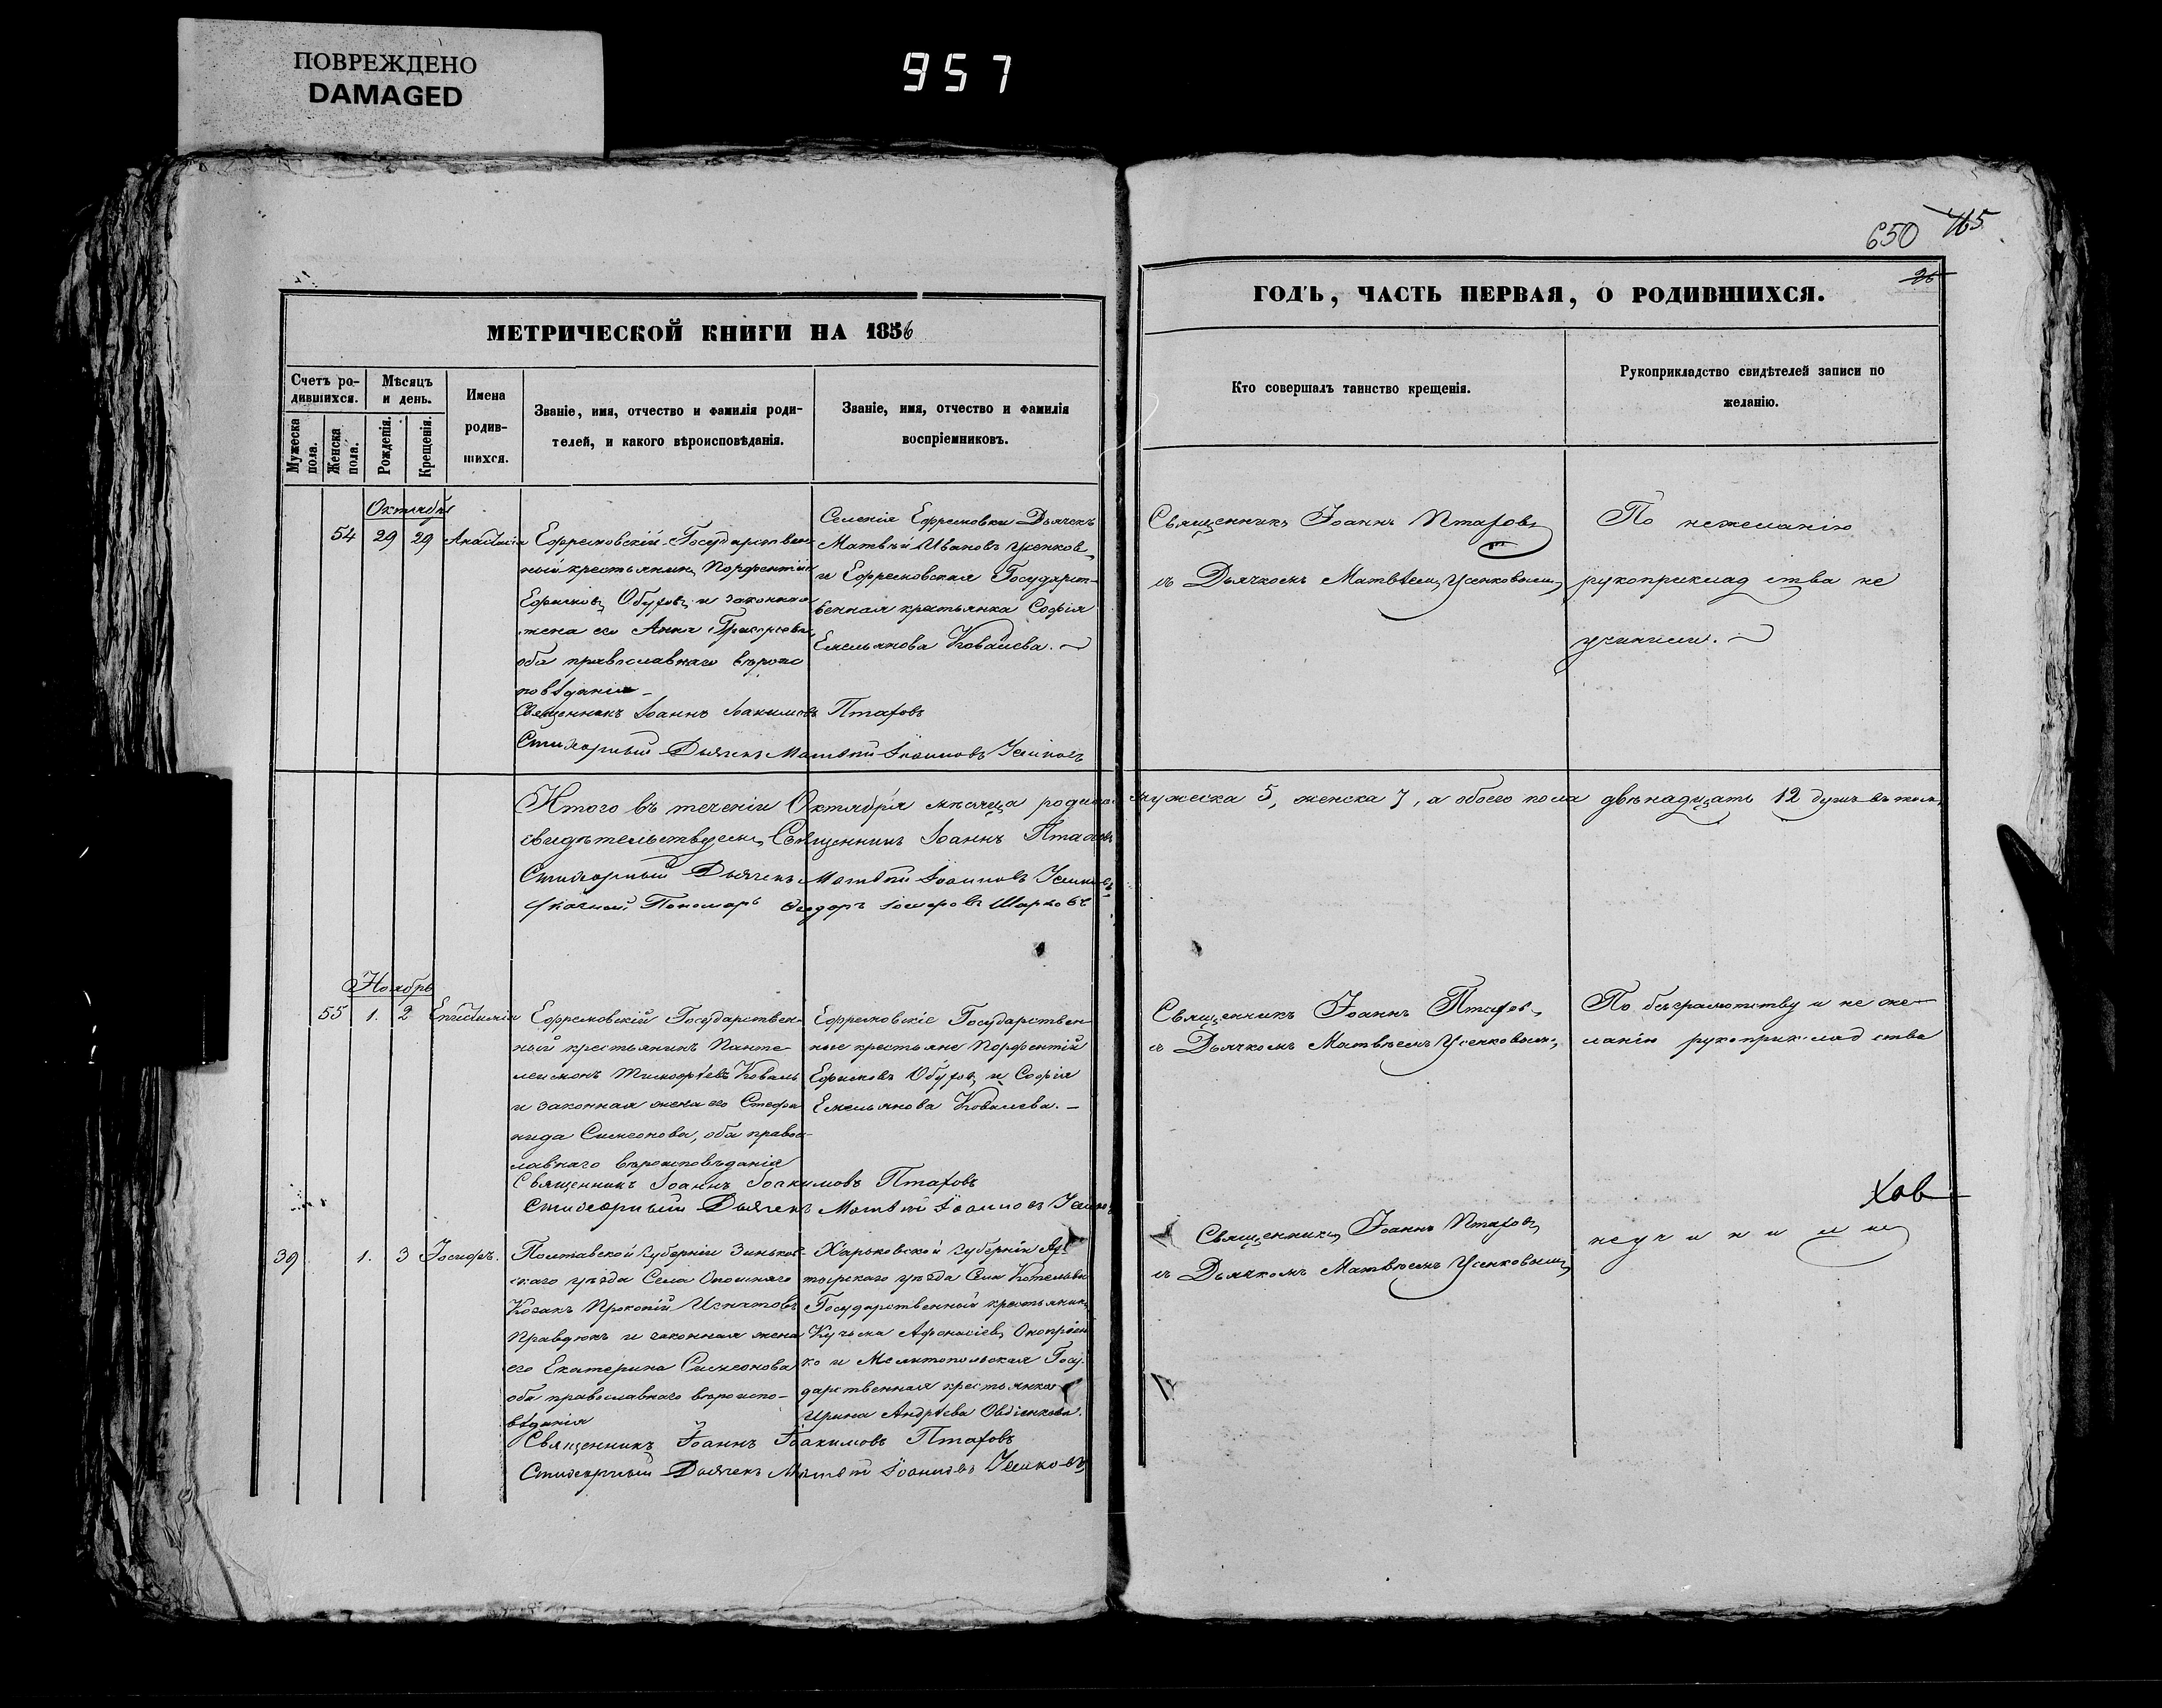 ПОВРЕЖДЕНО
DAMAGED
957
650 765
26
МЕТРИЧЕСКОЙ КНИГИ НА 1856
Счетъ ро-
дившихся.
Мужеска пола.
Женска пола.
Мѣсяцъ
и день.
Рожденія.
Крещенія.
Имена
родив-
шихся.
Званіе, имя, отчество и фамилія роди-
телей, и какого вѣроисповѣданія.
Званіе, имя, отчество и фамилія
воспріемниковъ.
ГОДЪ, ЧАСТЬ ПЕРВАЯ, О РОДИВШИХСЯ.
Кто совершалъ таинство крещенія.
Рукоприкладство свидѣтелей записи по
желанію.
Октябрь
54 29 29 Анастасія
Ефремовскій Государствен-
ный крестьянинъ Порфентій
Ефимовъ Обуховъ и законная
жена его Анна Григорьева
оба православнаго вѣроис
повѣданія
Священникъ Іоаннъ Іоакимовъ Птаховъ
Стихарный Дьячекъ Матвѣй Іоанновъ Усенковъ
Селенія Ефремовки Дьячекъ
Матвѣй Ивановъ Усенковъ
и Ефремовская Государст-
венная крестьянка Софія
Емельянова Ковалева.
Священникъ Іоаннъ Птаховъ
съ Дьячкомъ Матвѣемъ Усенковымъ
По нежеланію
рукоприкладства не
учинили.
Итого въ теченіи Октября мѣсяца родило мужеска 5, женска 7, а обоего пола двѣнадцать 12 душъ въ чемъ
свидѣтельствуемъ Священникъ Іоаннъ Птаховъ
Стихарный Дьячекъ Матвѣй Іоанновъ Усенковъ
Пономарь Ѳеодоръ Шарковъ
Ноябрь
55 1. 2
Ефремовскій Государствен-
ный крестьянинъ Панте-
леимонъ Тимофѣевъ Коваль
и законная жена его Стефа
нида Симеонова, оба правос-
лавнаго вѣроисповѣданія
Священникъ Іоаннъ Іоакимовъ Птаховъ
Стихарный Дьячекъ Матвѣй Іоанновъ Усенковъ
Ефремовскіе Государствен-
ные крестьяне Порфентій
Ефимовъ Обуховъ и Софія
Емельянова Ковалева.
Священникъ Іоаннъ Птаховъ
съ Дьячкомъ Матвѣемъ Усенковымъ
По безграмотству и не же-
ланію рукоприкладства
39 1. 3 Іосифъ.
Полтавской Губерніи Зиньков-
скаго уѣзда Села Опошняго
Козакъ Прокопій Игнатовъ
Правдюкъ и законная жена
его Екатерина Симеонова
оба православнаго вѣроиспо-
вѣданія
Священникъ Іоаннъ Іоакимовъ Птаховъ
Стихарный Дьячекъ Матвѣй Іоанновъ Усенковъ
Харьковской Губерніи Ах-
тырскаго уѣзда Села Котельвы
Государственный крестьянинъ
Кузьма Афонасіевъ Онопріен
ко и Мелитопольская Госу-
дарственная крестьянка
Ирина Андрѣева Овдіенкова.
Священникъ Іоаннъ Птаховъ
съ Дьячкомъ Матвѣемъ Усенковымъ
неучинили